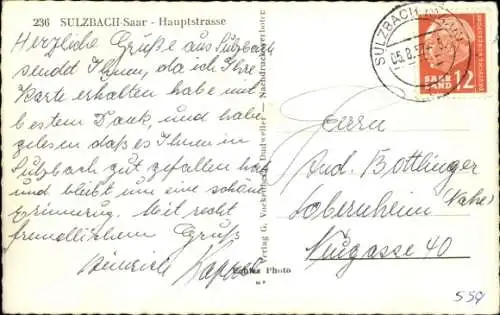 236 SULZBACH-Saar - Hauptstrasse
Herzliche Grüße aus Sulzbach
sendet Ihnen, da ich Ihre
Karte erhalten habe mit
bestem Dank, und habe
gelesen daß es Ihnen in
Sulzbach gut gefallen hat
und bleibt um eine schöne
Erinnerug. Mit recht
freundlichem Gruß
Heinrich Kappel
Verlag G. Vockenberg, Dudweiler - Nachdruck verboten
Echtes Photo
SULZBACH
05.8.57
SAAR
LAND 12
DEUTSCHE BUNDESPOST
Herrn
And. Bottlinger
Sobernheim
(Nahe)
Neugasse 40
559